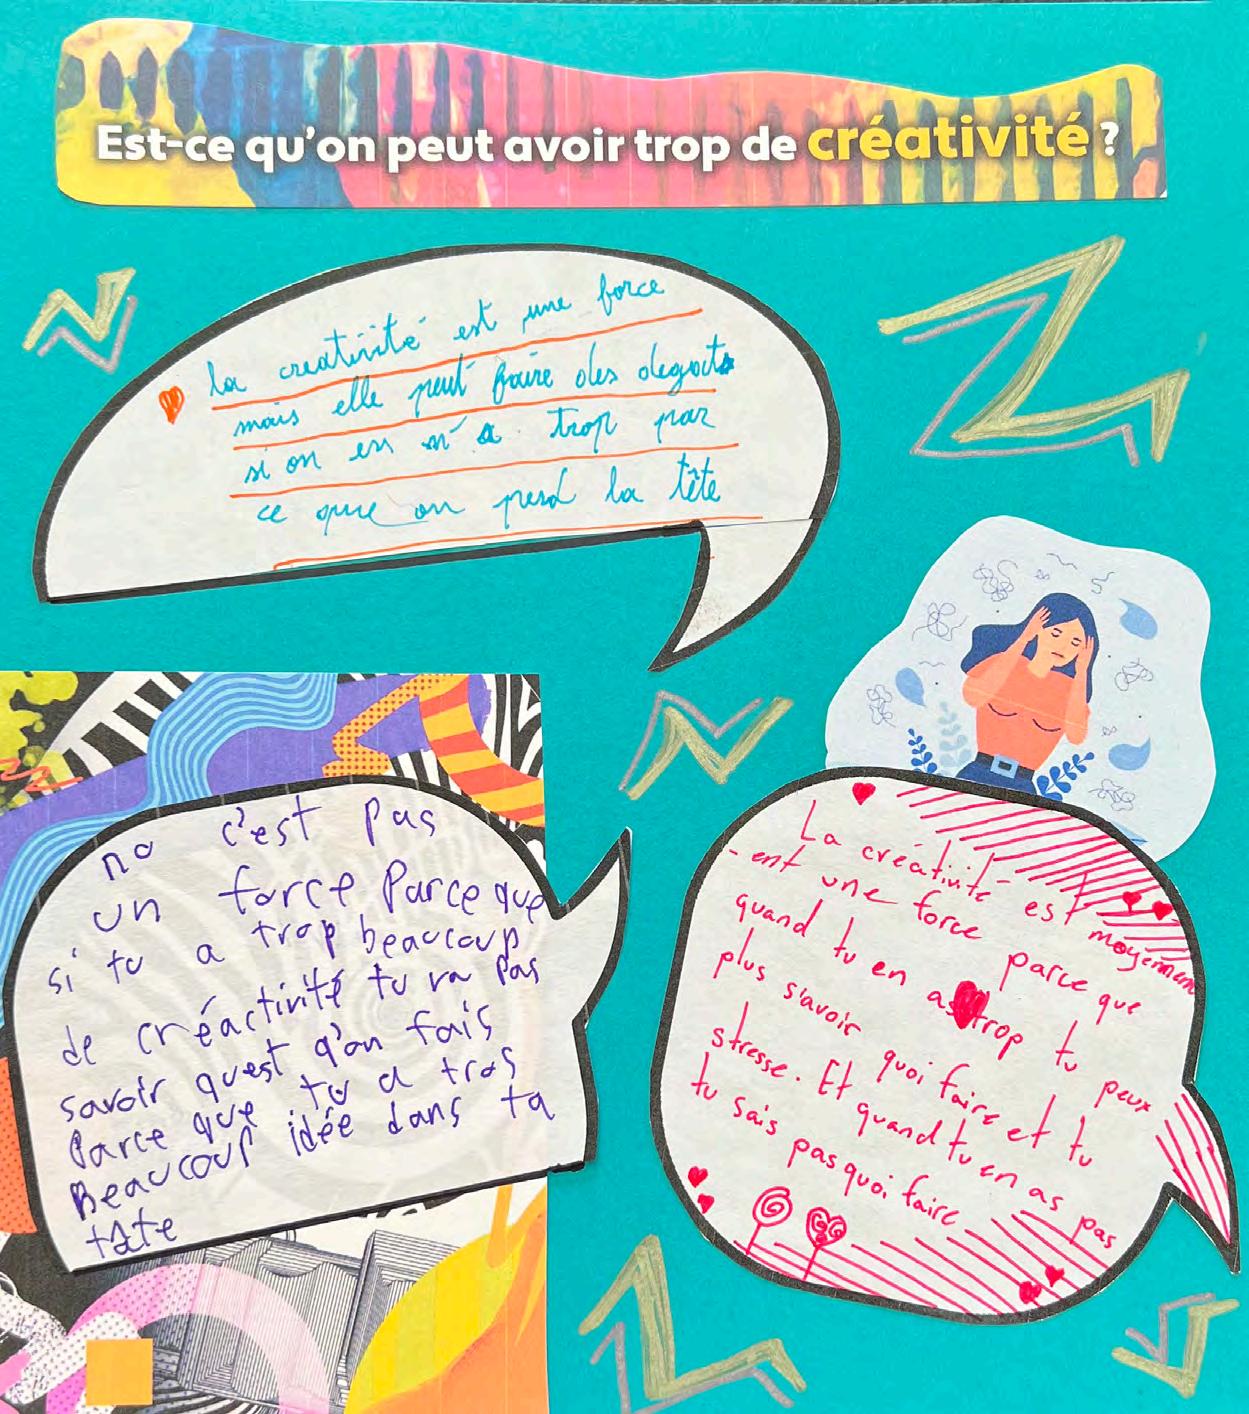 Est-ce qu'on peut avoir trop de créativité ?
la creativité est une force
mais elle peut faire des degats
si on en n'a trop par
ce que on perd la tête
no c'est pas
un force parce que
si tu a trop beaucoup
de créactivité tu va pas
savoir quest q'on fais
parce que tu a tros
Beaucoup idée dans ta
tâte
La créativité est moyennem
-ent une force parce que
quand tu en as trop tu peux
plus s'avoir quoi faire et tu
stresse. Et quand tu en as pas
tu sais pas quoi faire